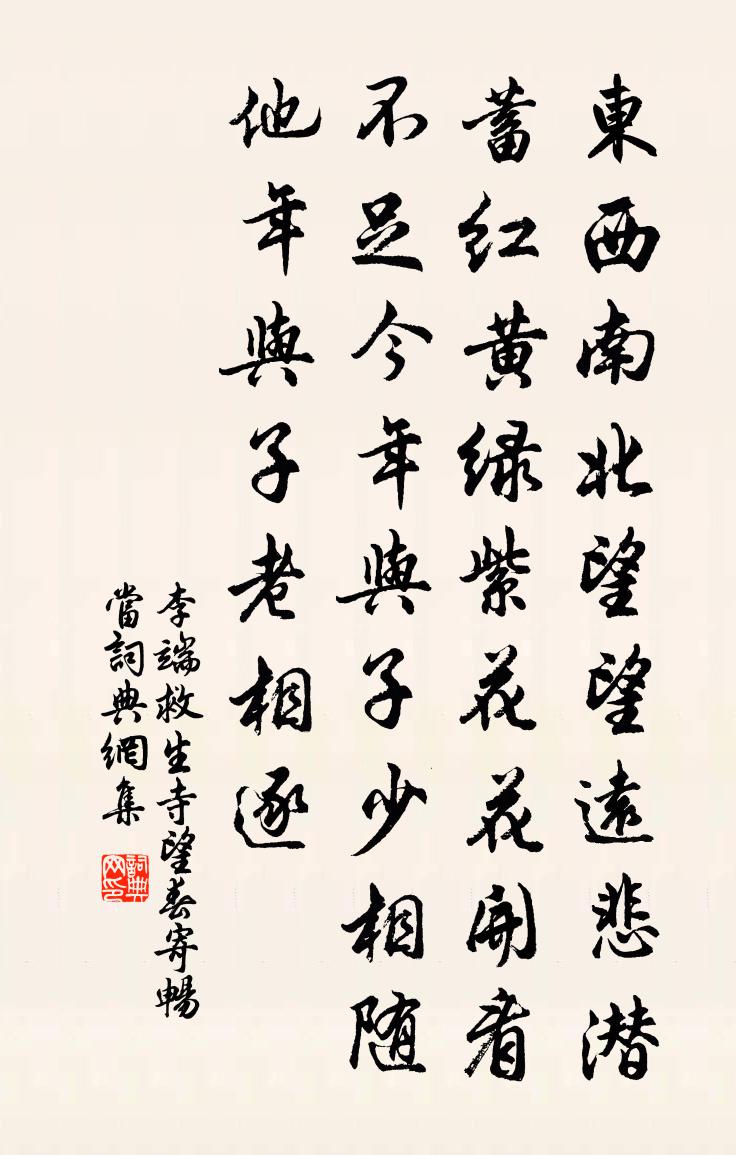 東西南北望望遠悲潜
蓄紅黄緑紫花花開看
不足今年與子少相随
他年與子老相逐
李端救生寺望春寄暢
當詞典網集
詞典网印